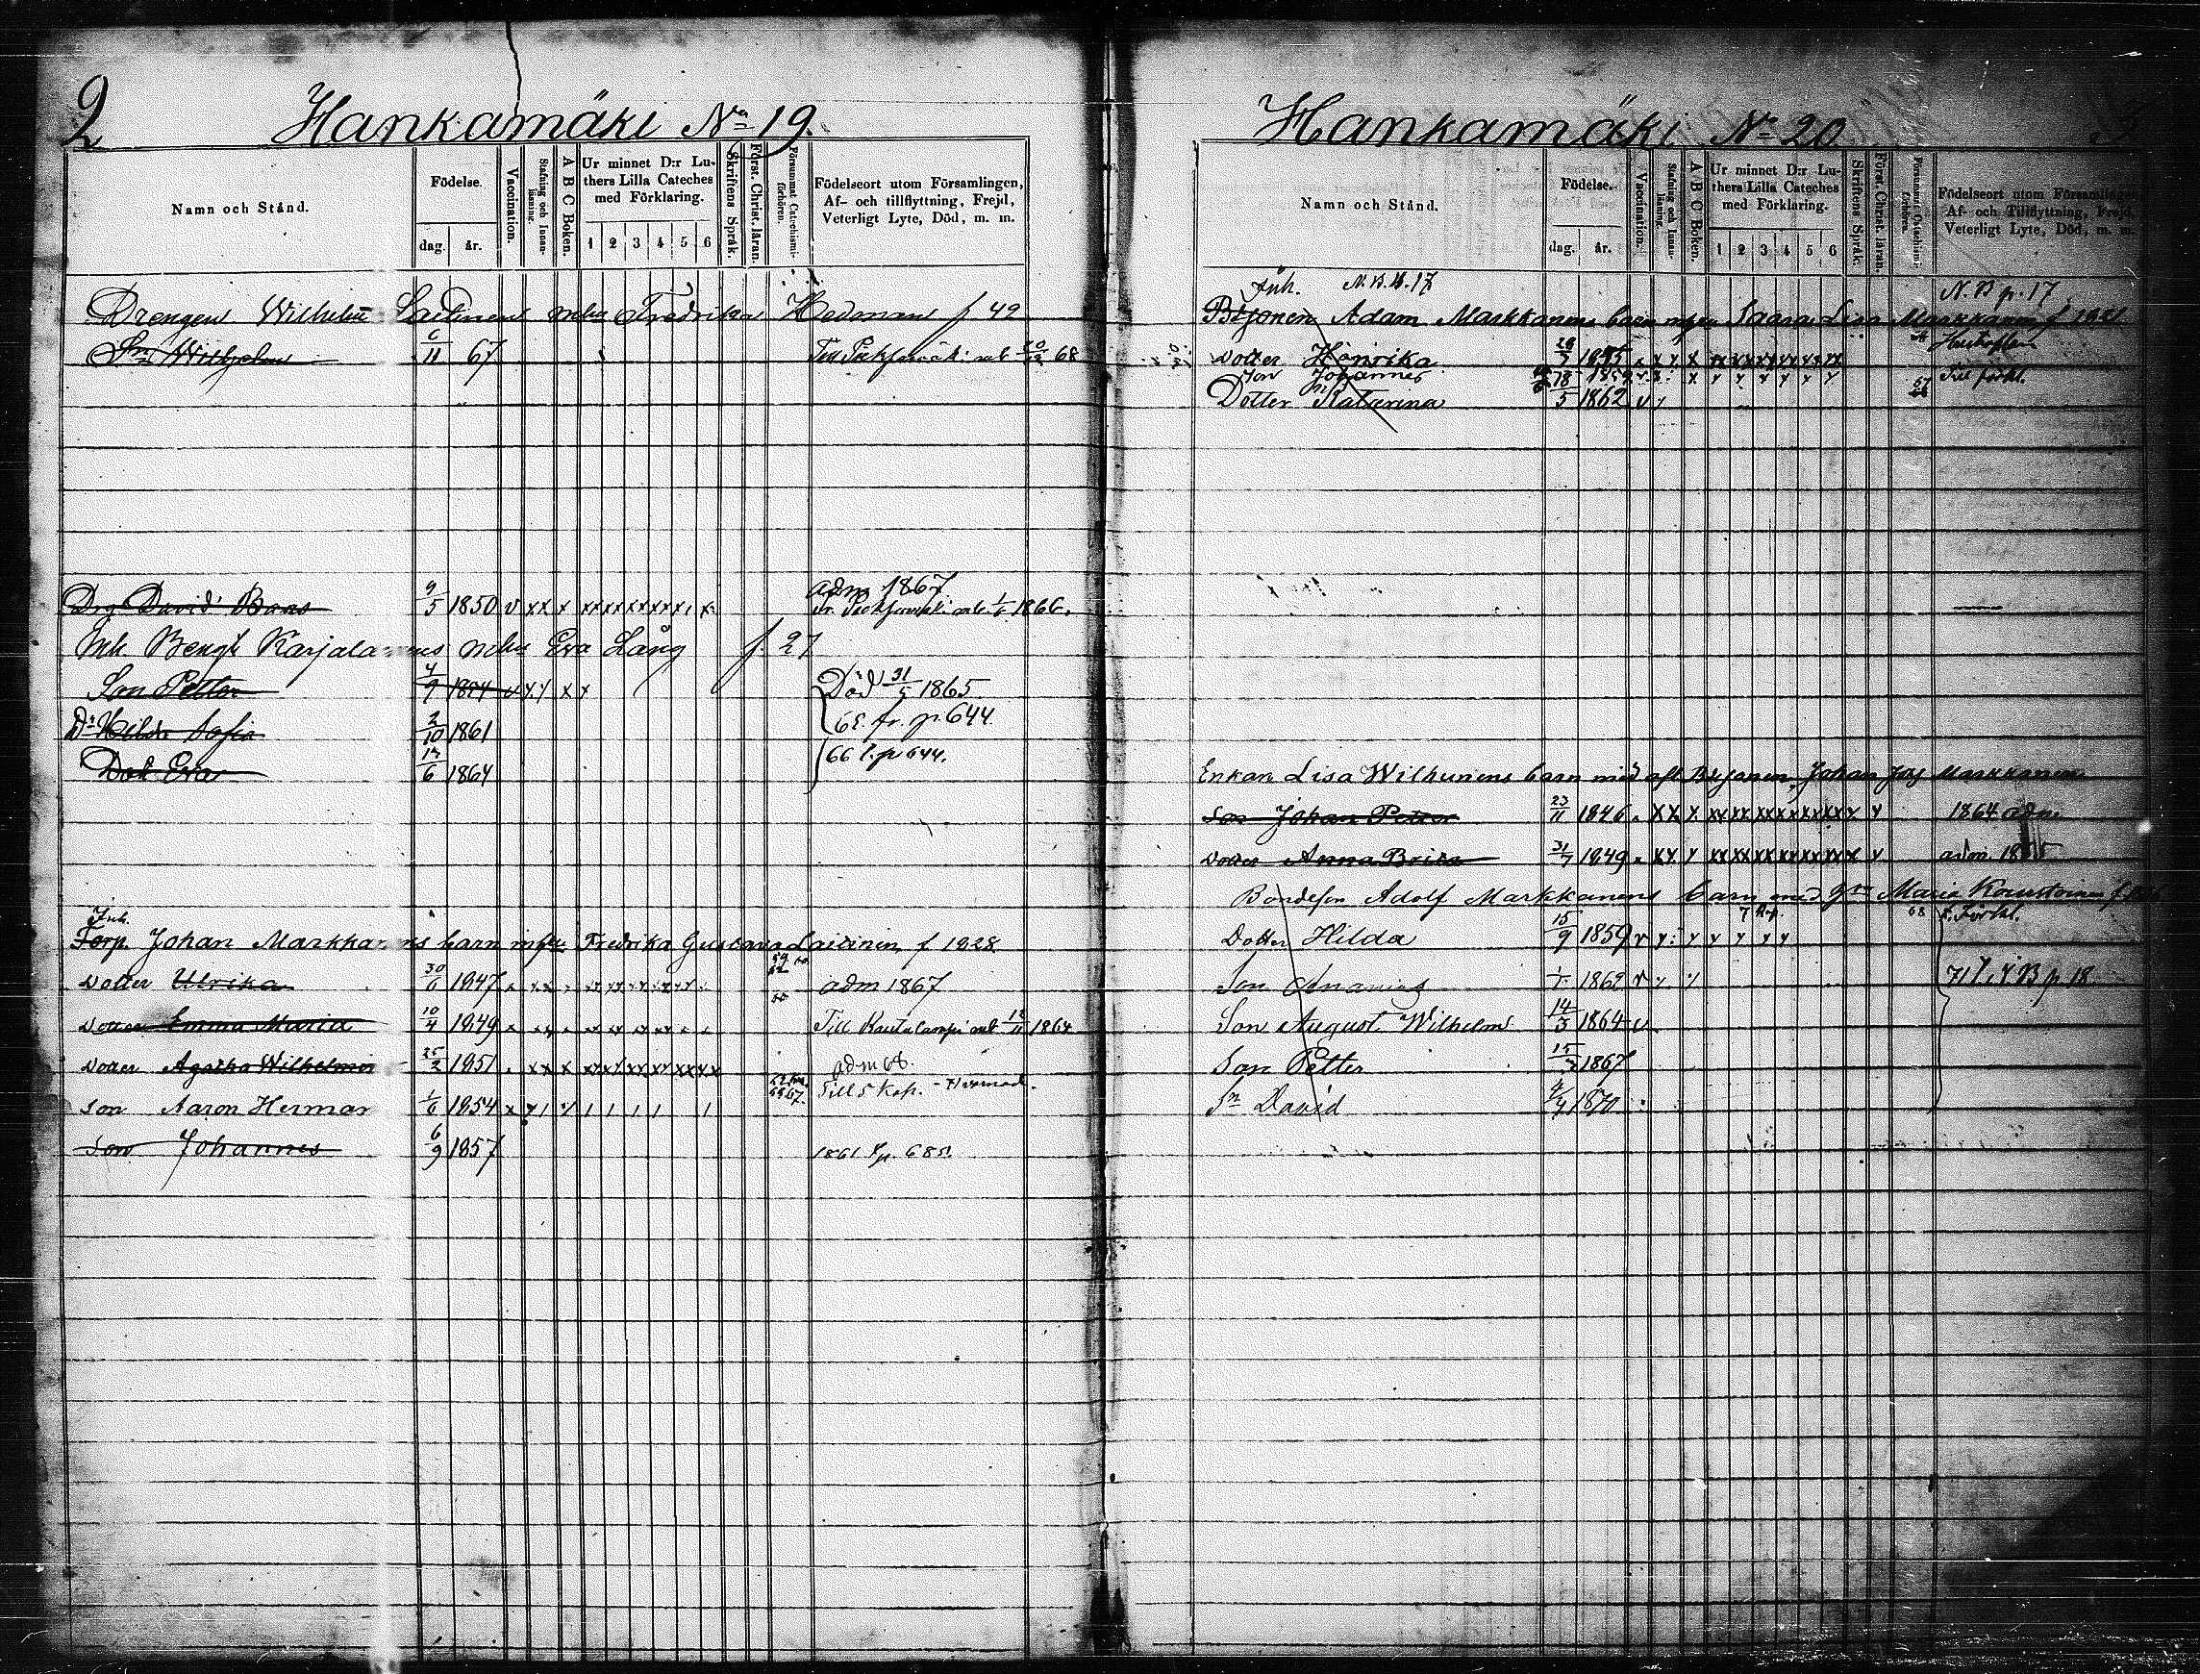 2
Hankamäki No 19.
Namn och Stånd.
Födelse.
dag. år.
Vaccination.
Stafning och Innan-läsning.
A B C Boken.
Ur minnet D:r Lu-
thers Lilla Cateches
med Förklaring.
1 2 3 4 5 6
Skriftens Språk.
Först. Christ. läran.
Försummat Catechismi-förhören.
Födelseort utom Församlingen,
Af- och tillflyttning, Frejd,
Veterligt Lyte, Död, m. m.
Drengen Wilhelm Laitinens mhu Fredrika Hedman f 42
Sn Wilhelm 6/11 67 68
Drg David Baas 9/5 1850 v xx x adm 1867
1866.
Inh. Bengt Karjalainens mhu Eva Lång f. 27
Son Petter 4/9 1854 Död 31/5 1865.
Dr Hilda Sofia 2/10 1861 65. fr. p. 644
Dot Eva 17/6 1864 66 t. p 644.
Inh.
Torp. Johan Markkanens barn m hu Fredrika Gustava Laitinen f 1828
dotter Ulrika 30/6 1847 adm 1867
dotter Emma Maria 10/4 1849 Till Rautalampi att 12/11 1864
dotter Agatha Wilhelmin 25/2 1851 adm 68.
son Aaron Herman 1/6 1854 Till 5 kap.
son Johannes 6/9 1857 1861 t p. 685.
Hankamäki No 20.
Namn och Stånd.
Födelse.
dag. år.
Vaccination.
Stafning och Innan-läsning.
A B C Boken.
Ur minnet D:r Lu-
thers Lilla Cateches
med Förklaring.
1 2 3 4 5 6
Skriftens Språk.
Först. Christ. läran.
Försummat Catechismi-förhören.
Födelseort utom Församlingen
Af- och Tillflyttning, Frejd,
Veterligt Lyte, Död, m. m.
Inh. N. B. p. 17 N. B p. 17
Bysonen Adam Markkanens barn m hu Saara Lisa Markkanen f 1821
dotter Henrika 28/7 1855
Son Johannes 1859 Till förkl.
Dotter Katarina 5 1862
Enkan Lisa Wilhunens barn med afl Bysonen Johan Markkanen
son Johan Petter 23/11 1846 1864 adm.
dotter Anna Brita 31/7 1849 adm. 1865
Bondeson Adolf Markkanens barn med Maria
Dotter Hilda 15/9 1859 68 t. Förkl.
Son Ananias 1862 71 t. N B p. 18
Son August Wilhelm 14/3 1864
Son Petter 15 1867
Sn David 4/4 1870